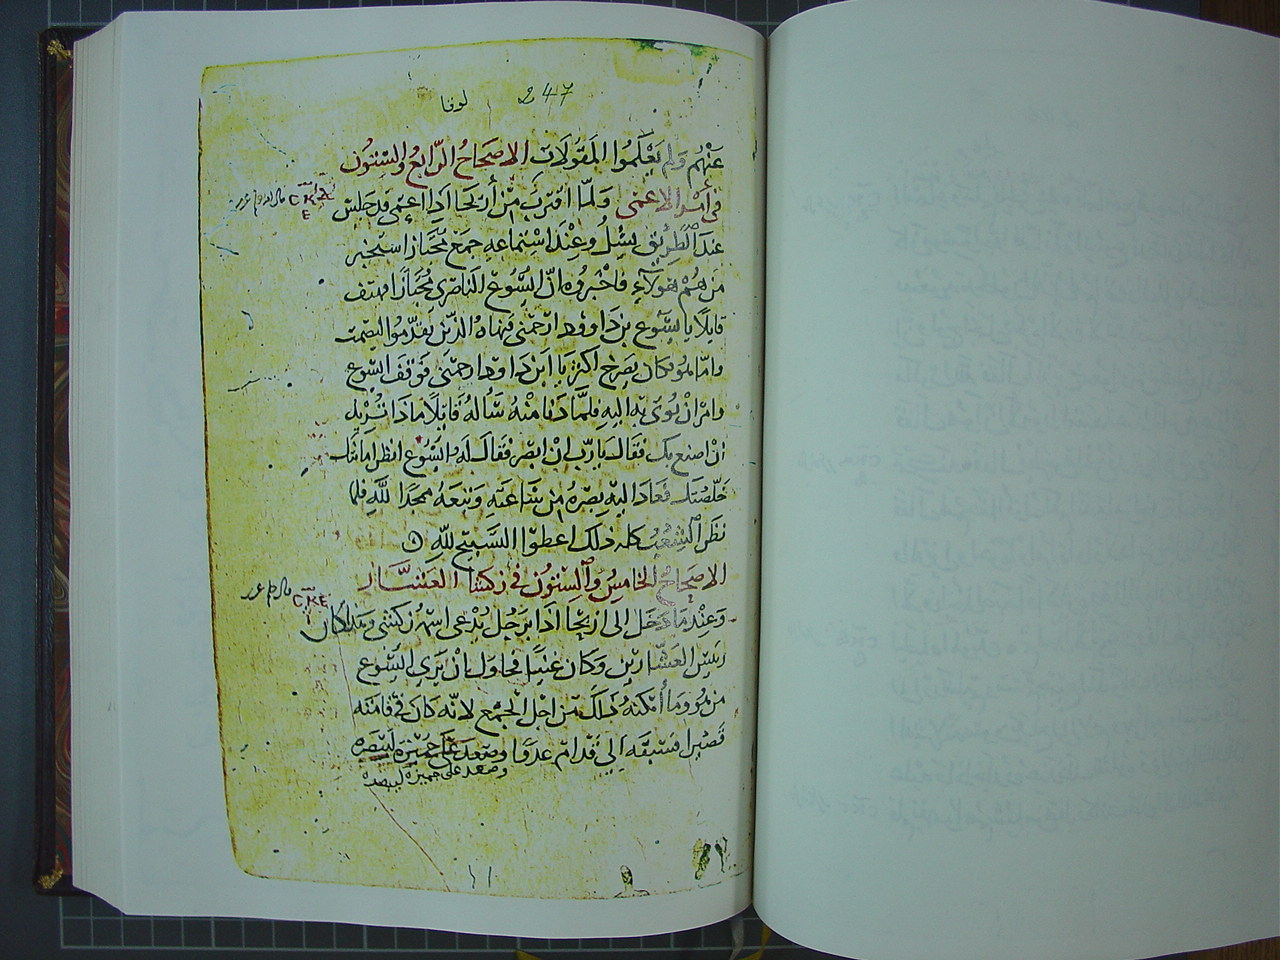 لوقا 247
عنهم ولم يعلموا المقولات الاصحاح الرابع والستون
في أمر الاعمى ولما اقترب من أريحا اذا اعمى قد جلس
C K A
E
عند الطريق يسل وعند استماعه جمع مجتاز استخبر
من هم هولاء فاخبروه ان اليسوع الناصرى مجتازا فهتف
قايلا يا يسوع بن داوود ارحمنى فنهاه الذين يقدموا ليصمت
واما هو كان يصرخ اكثر يا ابن داود ارحمنى فوقف اليسوع
وامر ان يوتى به اليه فلما دنا منه سأله قايلا ماذا تريد
ان اصنع بك فقال يا رب ان ابصر فقال له اليسوع انظر امانتك
خلصتك فعاد اليه بصره من ساعته وتبعه ممجدا لله فلما
نظر الشعب كله ذلك اعطوا التسبيح لله
الاصحاح الخامس والستون في زكشا العشار
C K E
وعندما دخل الى اريحا اذا برجل يدعى اسمه زكشى وهذا كان
رييس العشارين وكان غنيا فحاول ان يرى اليسوع
من هو وما أمكنه ذلك من اجل الجمع لانه كان في قامته
قصيرا فسبقه الى قدام عدوا وصعد على جميزة ليبصره
وصعد على جميزه ليبصره